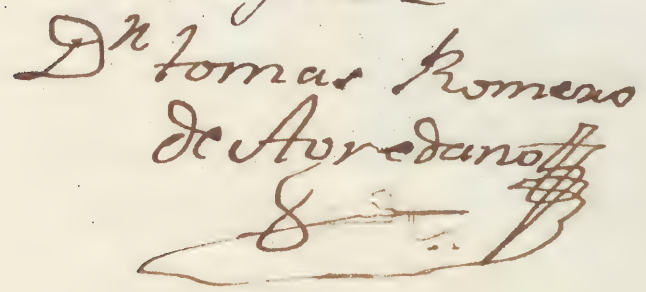 Dn tomas Romero
de Avredano